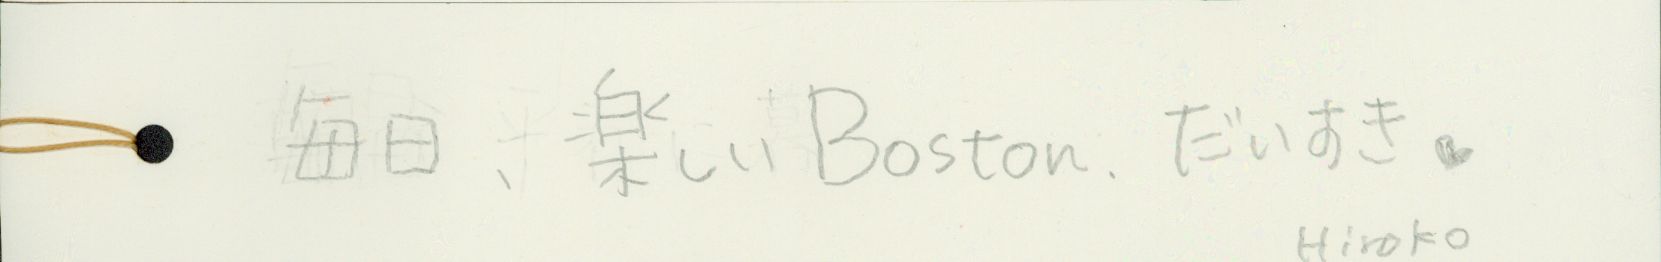 毎日、楽しいBoston. だいすき。
Hiroko